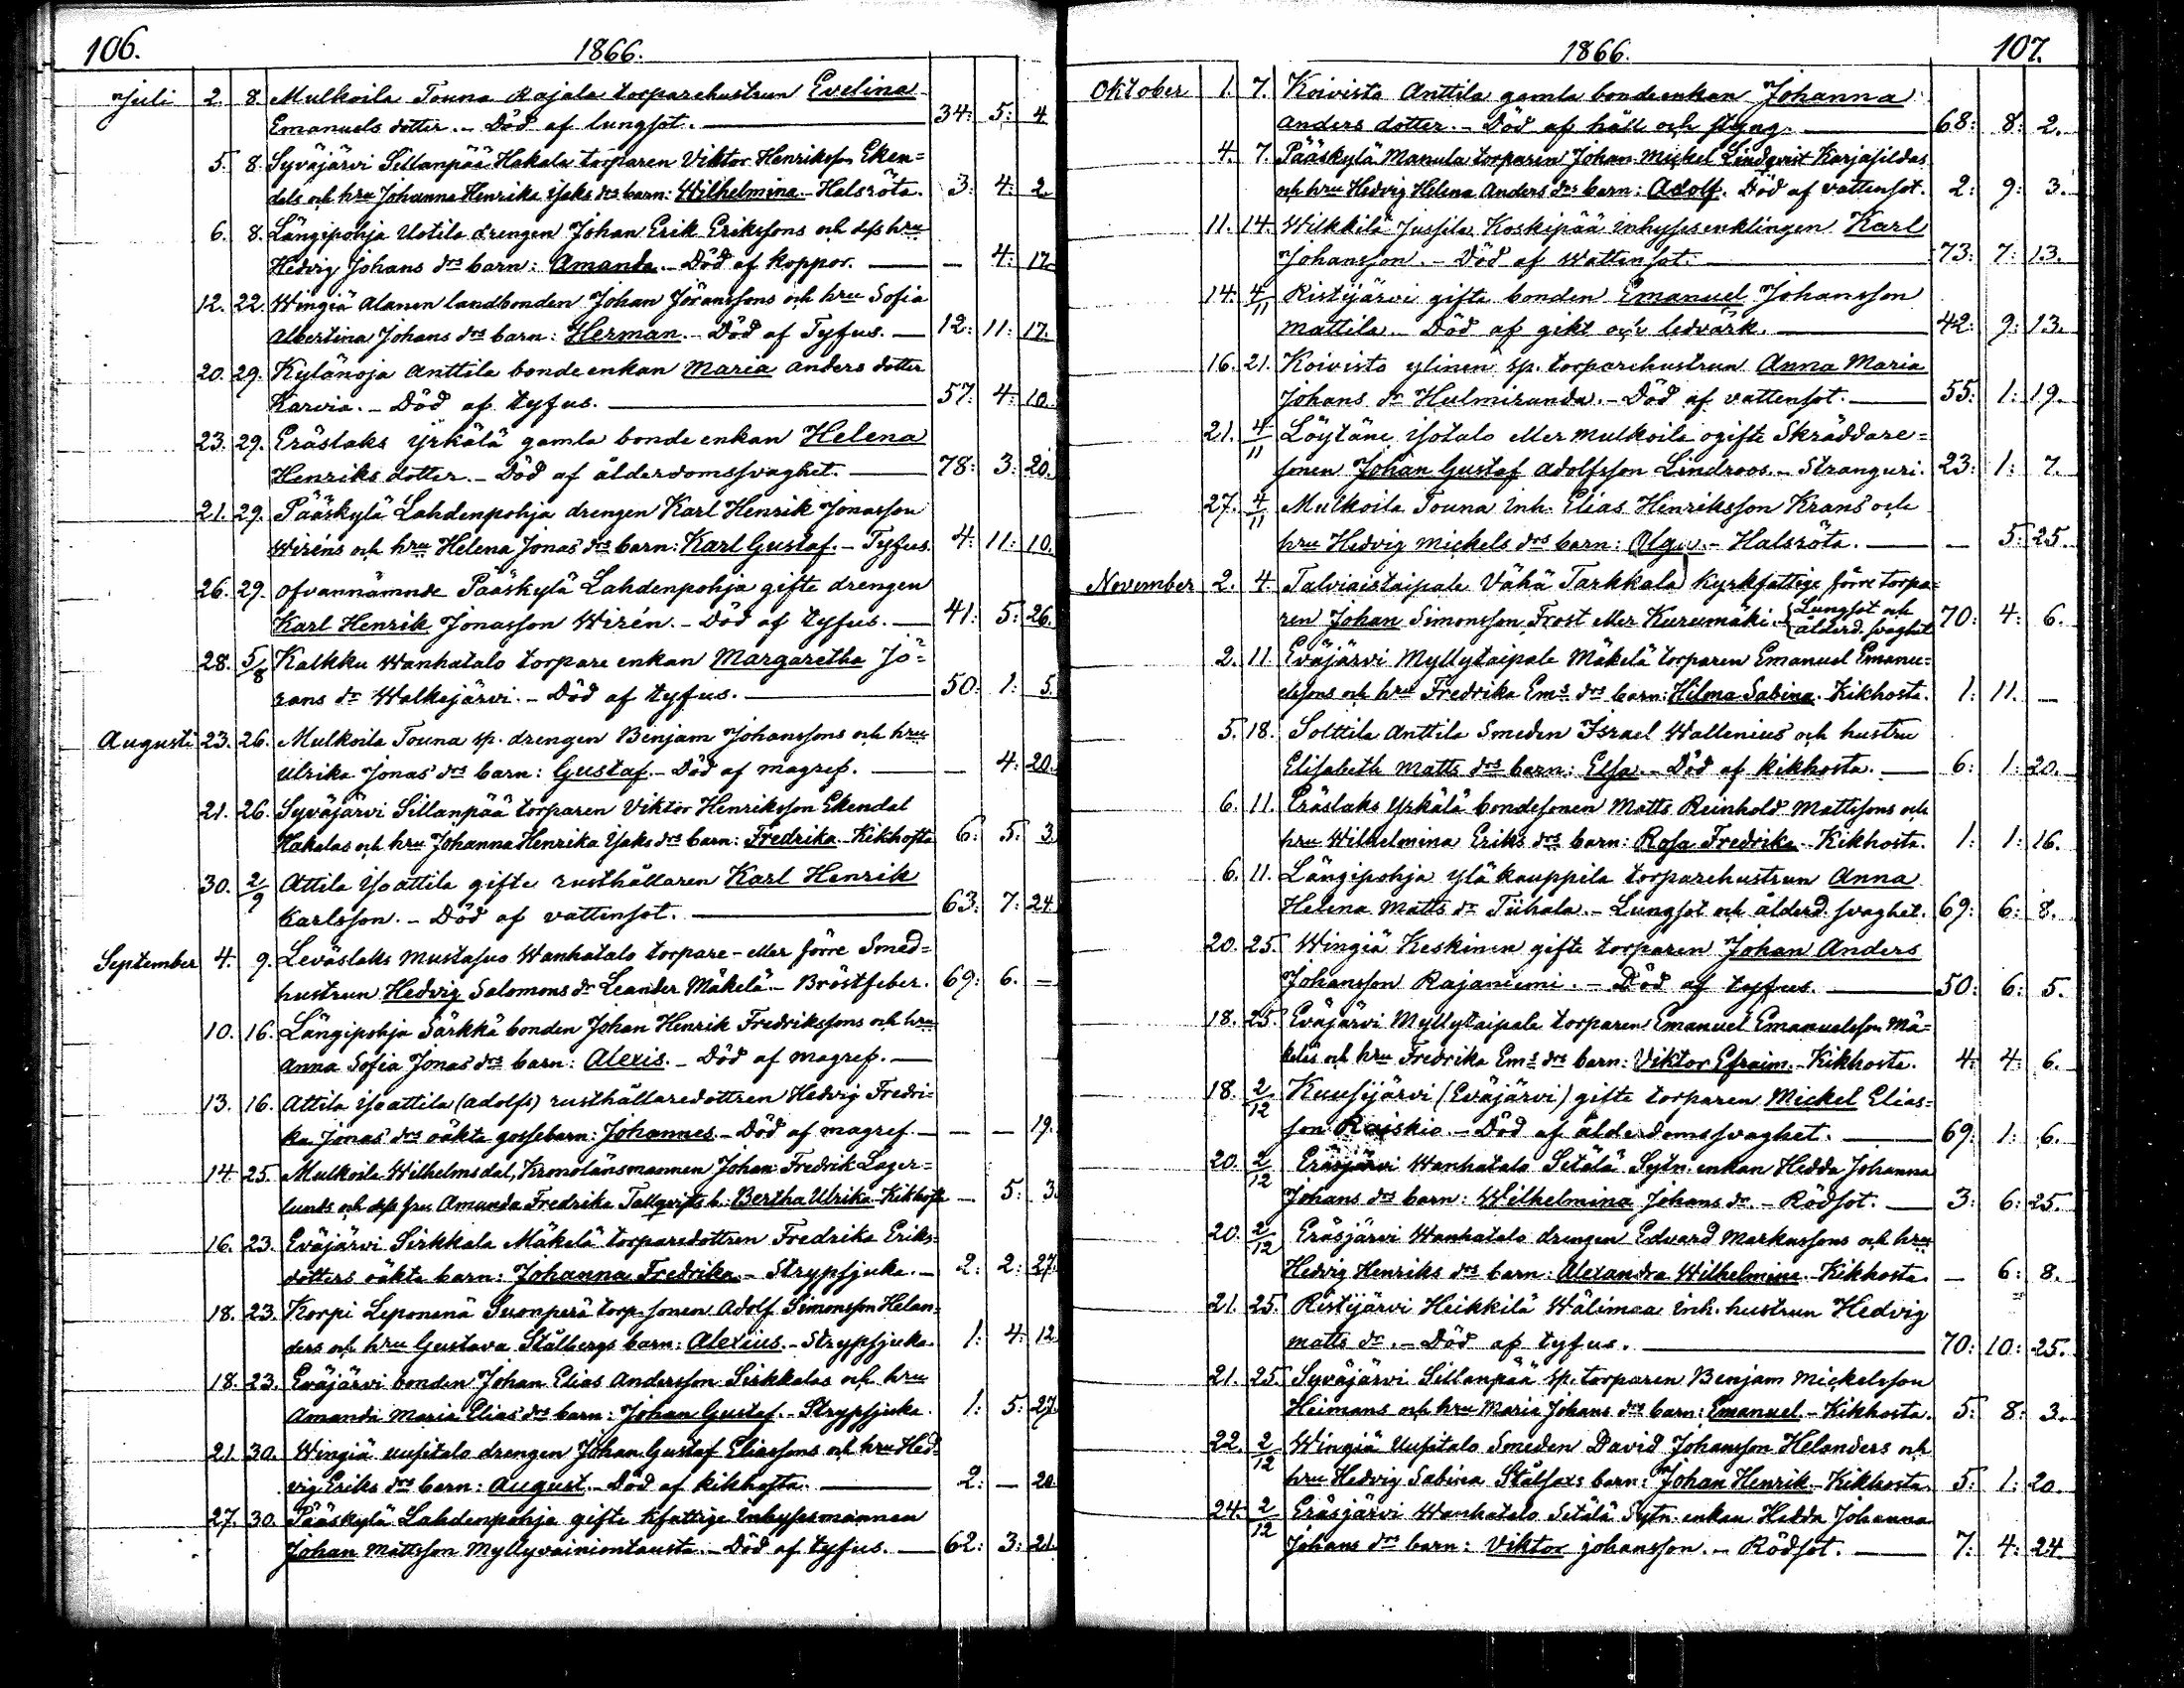 106.
1866.
Juli 2. 8. Mulkoila Touna Rajala torparehustrun Evelina
Emanuels dotter. - Död af lungsot. 34: 5: 4
5. 8. Syväjärvi Sillanpää Hakala torparen Viktor Henriksson Eken=
dals och hru Johanna Henrika Isaks drs barn: Wilhelmina. - Halsröta. 3: 4: 2
6. 8. Längipohja Uotila drengen Johan Erik Erikssons och dess hru
Hedvig Johans drs barn: Amanda. - Död af koppor. - 4: 17.
12. 22. Wingiä Alanen landbonden Johan Jöranssons och hru Sofia
Albertina Johans drs barn: Herman. - Död af Tyfus. - 12: 11: 17.
20. 29. Kylänoja Anttila bonde enkan Maria Anders dotter
Karvia. - Död af tyfus. 57: 4: 10.
23. 29. Eräslaks Yrkälä gamla bonde enkan Helena
Henriks dotter. - Död af ålderdomssvaghet. 78: 3: 20.
21. 29. Pääskylä Lahdenpohja drengen Karl Henrik Jonasson
Wiréns och hru Helena Jonas drs barn: Karl Gustaf. - Tyfus. 4: 11: 10.
26. 29. ofvannämnde Pääskylä Lahdenpohja gifte drengen
Karl Henrik Jonasson Wirén. - Död af tyfus. - 41: 5: 26.
28. 5/8 Kalkku Wanhatalo torpare enkan Margaretha Jö=
rans dr Walkejärvi. - Död af tyfus. 50: 1: 5.
Augusti 23. 26. Mulkoila Touna sp. drengen Benjam Johanssons och hru
Ulrika Jonas drs barn: Gustaf. - Död af magref. - 4: 20.
21. 26. Syväjärvi Sillanpää torparen Viktor Henriksson Ekendal
Hakalas och hru Johanna Henrika Isaks drs barn: Fredrika. Kikhosta 6: 5: 3.
30. 2/9 Attila Isoattila gifte rusthållaren Karl Henrik
Karlsson. - Död af vattensot. 63: 7: 24
September 4. 9. Leväslaks Mustasuo Wanhatalo torpare- eller förre Smed=
hustrun Hedvig Salomons dr Leander Mäkelä. - Bröstfeber. 69: 6. -
10. 16. Längipohja Särkkä bonden Johan Henrik Fredrikssons och hru
Anna Sofia Jonas drs barn: Alexis. - Död af magref. -
13. 16. Attila Isoattila (Adolfs) rusthållaredottren Hedvig Fredri=
ka Jonas drs oäkta gossebarn: Johannes. - Död af magref. - - - 19.
14. 25. Mulkoila Wilhelmsdal, Kronolänsmannen Johan Fredrik Lager=
lunds och dess fru Amanda Fredrika Tallqvists b.: Bertha Ulrika. Kikhosta - 5: 3.
16. 23. Eväjärvi Sirkkala Mäkelä torparedottren Fredrika Eriks=
dotters oäkta barn: Johanna Fredrika. - Strypsjuka. - 2: 2: 27.
18. 23. Korpi Leponenä Suonperä torp. sonen Adolf Simonsson Helan=
ders och hru Gustava Stålbergs barn: Alexius. - Strypsjuka. 1: 4: 12.
18. 23. Eväjärvi bonden Johan Elias Andersson Sirkkalas och hru
Amanda Maria Elias drs barn: Johan Gustaf. - Strypsjuka. 1: 5: 27.
21. 30. Wingiä Uusitalo drengen Johan Gustaf Eliassons och hru Hed=
vig Eriks drs barn: August. - Död af kikhosta. 2: - 20.
27. 30. Pääskylä Lahdenpohja gifte kfattige Inhysesmannen
Johan Mattsson Myllyvainiontausta. - Död af tyfus. - 62: 3: 21.
1866.
107.
Oktober 1. 7. Koivisto Anttila gamla bondeenkan Johanna
Anders dotter. - Död af håll och styng. 68: 8: 2.
4. 7. Pääskylä Manula torparen Johan Mickel Lindqvist Karjasildas
och hru Hedvig Helena Anders drs barn: Adolf. Död af vattensot. 2: 9: 3.
11. 14. Wilkkilä Jussila Koskipää inhysesenklingen Karl
Johansson. - Död af Wattensot. 73: 7: 13.
14. 4/11 Ristijärvi gifte bonden Emanuel Johansson
Mattila. - Död af gikt och ledvärk. 42: 9: 13.
16. 21. Koivisto ylinen sp. torparehustrun Anna Maria
Johans dr Hulmiranda. - Död af vattensot. 55: 1: 19.
21. 4/11 Löytäne Isotalo eller Mulkoila ogifte Skräddare=
sonen Johan Gustaf Adolfsson Lindroos. - Stranguri. 23: 1: 7.
27. 4/11 Mulkoila Touna Inh. Elias Henriksson Krans och
hru Hedvig Mickels drs barn: Olga. - Halsröta. - 5: 25.
November 2. 4. Talviaistaipale Vähä Tarkkala Kyrkfattige förre torpa=
ren Johan Simonsson Frost eller Kurumäki. - Lungsot och ålderd. svaghet 70: 4: 6.
2. 11. Eväjärvi Myllytaipale Mäkelä torparen Emanuel Emanu=
elssons och hru Fredrika Ems drs barn: Hilma Sabina. Kikhosta. 1: 11. -
5. 18. Solttila Anttila Smeden Israel Wallenius och hustru
Elisabeth Matts drs barn: Elsa. - Död af kikhosta. - 6: 1: 20.
6. 11. Eräslaks Yrkälä bondesonen Matts Reinhold Mattssons och
hru Wilhelmina Eriks drs barn: Rosa Fredrika. - Kikhosta. 1: 1: 16.
6. 11. Längipohja Yläkauppila torparehustrun Anna
Helena Matts dr Tiihala. - Lungsot och ålderd. svaghet. 69: 6: 8.
20. 25. Wingiä Keskinen gifte torparen Johan Anders
Johansson Rajaniemi. - Död af tyfus. 50: 6: 5.
18. 25. Eväjärvi Myllytaipale torparen Emanuel Emanuelsson Mä=
keläs och hru Fredrika Ems drs barn: Viktor Efraim. - Kikhosta. 4: 4: 6.
18. 2/12 Kuusijärvi (Eväjärvi) gifte torparen Mickel Elias=
son Raiskio. - Död af ålderdomssvaghet. 69: 1: 6.
20. 2/12 Eräsjärvi Wanhatalo Setälä Sytn. enkan Hedda Johanna
Johans drs barn: Wilhelmina Johans dr. - Rödsot. - 3: 6: 25.
20. 2/12 Eräsjärvi Wanhatalo drengen Edvard Markussons och hru
Hedvig Henriks drs barn: Alexandra Wilhelmina. - Kikhosta. - 6: 8.
21. 25. Ristijärvi Heikkilä Wälimaa inh. hustrun Hedvig
Matts dr. - Död af tyfus. 70: 10: 25.
21. 25. Syväjärvi Sillanpää sp. torparen Benjam Mickelsson
Heimans och hru Maria Johans drs barn: Emanuel. - Kikhosta. 5: 8: 3.
22. 2/12 Wingiä Uusitalo Smeden David Johansson Helanders och
hru Hedvig Sabina Stålfaxs barn: Johan Henrik. - Kikhosta. 5: 1: 20.
24. 2/12 Eräsjärvi Wanhatalo Setälä Sytn. enkan Hedda Johanna
Johans drs barn: Viktor Johansson. - Rödsot. 7: 4: 24